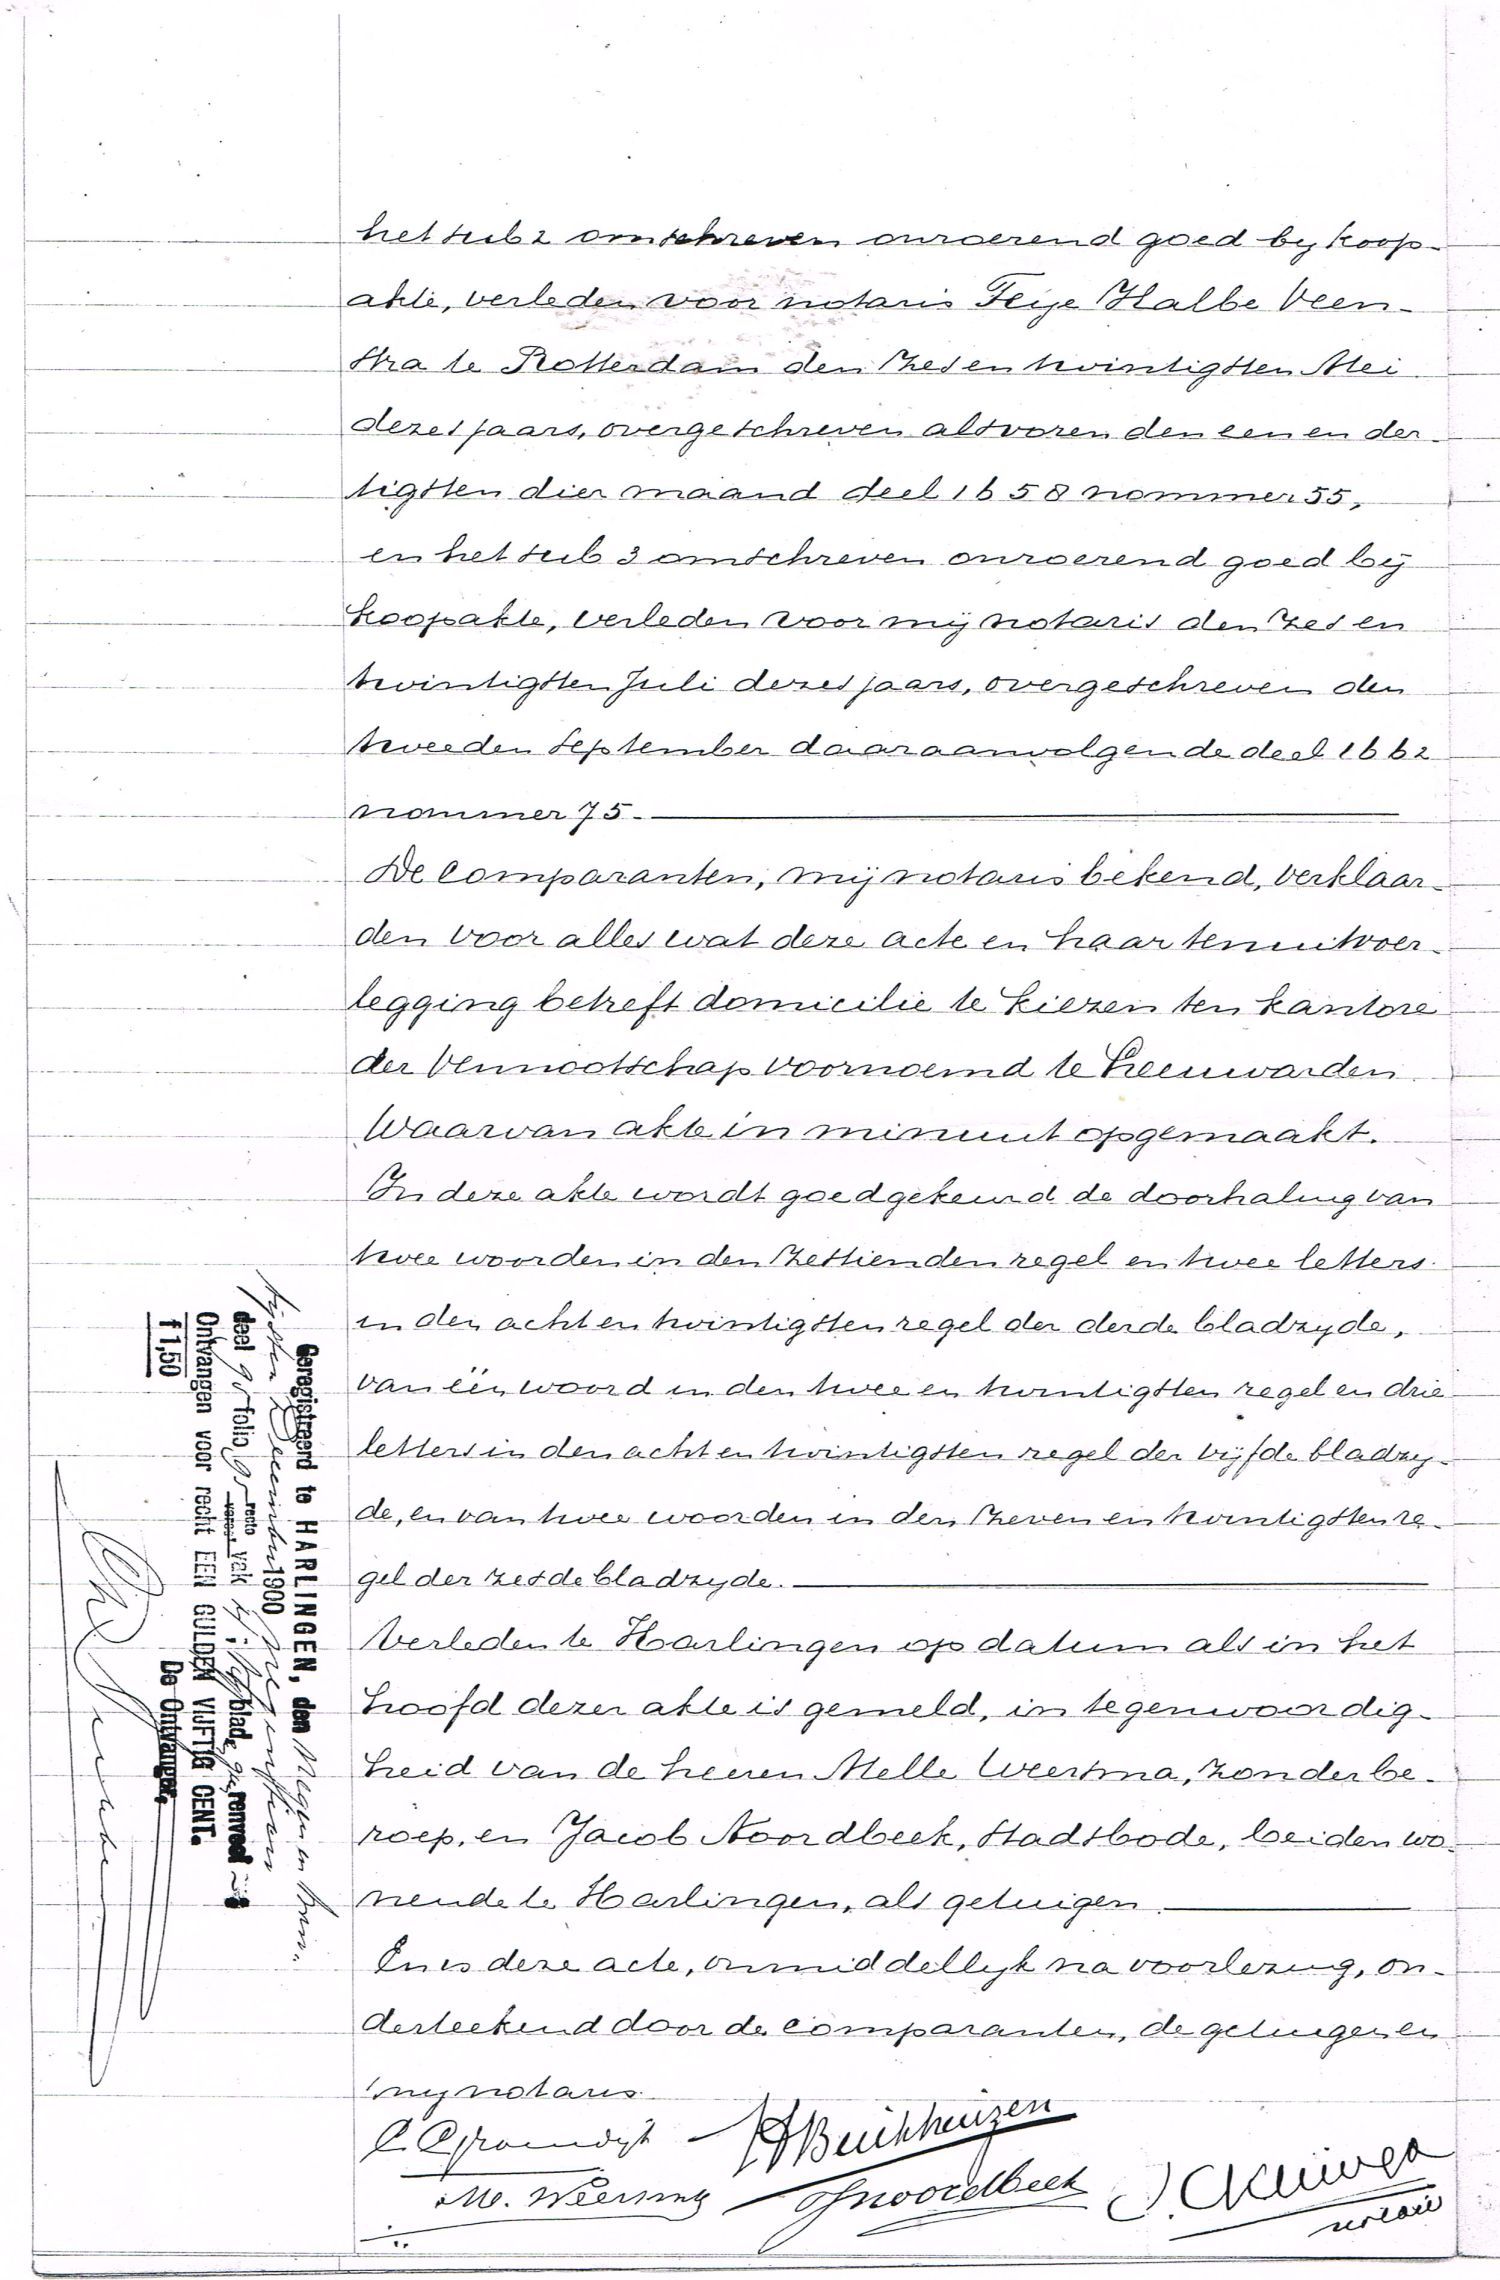 het sub 2 omschreven onroerend goed by koop-
akte, verleden voor notaris Feije Halbe Veen-
stra te Rotterdam den zes en twintigsten Mei
dezes jaars, overgeschreven alsvoren den een en der-
tigsten dier maand deel 1658 nommer 55,
en het sub 3 omschreven onroerend goed bij
koopakte, verleden voor mij notaris den zes en
twintigsten Juli dezes jaars, overgeschreven den
tweeden September daaraanvolgende deel 1662
nommer 75.
De comparanten, mij notaris bekend, verklaar-
den voor alles wat deze acte en haar tenuitvoer-
legging betreft domicilie te kiezen ten kantore
der Vennootschap voornoemd te Leeuwarden
Waarvan akte in minuut opgemaakt.
In deze akte wordt goedgekeurd de doorhaling van
twee woorden in den zestienden regel en twee letters
in den acht en twintigsten regel der derde bladzyde,
van één woord in den twee en twintigsten regel en drie
letters in den acht en twintigsten regel der vijfde bladzy-
de, en van twee woorden in den zeven en twintigsten re-
gel der zesde bladzyde.
Verleden te Harlingen op datum als in het
hoofd dezer akte is gemeld, in tegenwoordig-
heid van de heeren Melle Weersma, zonder be-
roep, en Jacob Noordbeek, stadsbode, beiden wo-
nende te Harlingen, als getuigen
En is deze acte, onmiddellyk na voorlezing, on-
derteekend door de comparanten, de getuigen en
my notaris
HBuikhuizen
M. Weersma
JNoordbeek
notaris
Geregistreerd te HARLINGEN, den Negen en twin-
tigsten December 1900
deel 95 folio 95 recto vak blad renvooi
Ontvangen voor recht EEN GULDEN VIJFTIG CENT.
f 1,50
De Ontvanger,